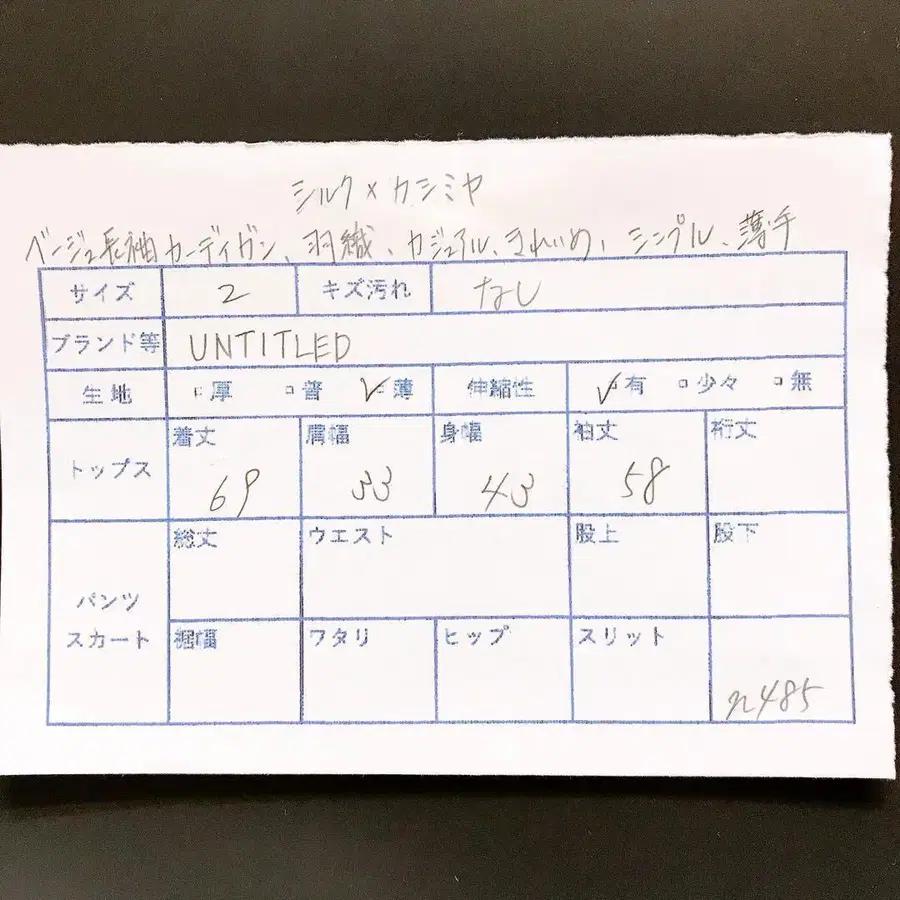 シルク×カシミヤ
ベージュ長袖カーディガン、羽織、カジュアル、きれいめ、シンプル、薄手
サイズ 2 キズ汚れ なし
ブランド等 UNTITLED
生地 □厚 □普 ✓薄 伸縮性 ✓有 □少々 □無
トップス 着丈 69 肩幅 33 身幅 43 袖丈 58 裄丈
パンツ スカート 総丈 ウエスト 股上 股下
裾幅 ワタリ ヒップ スリット n485